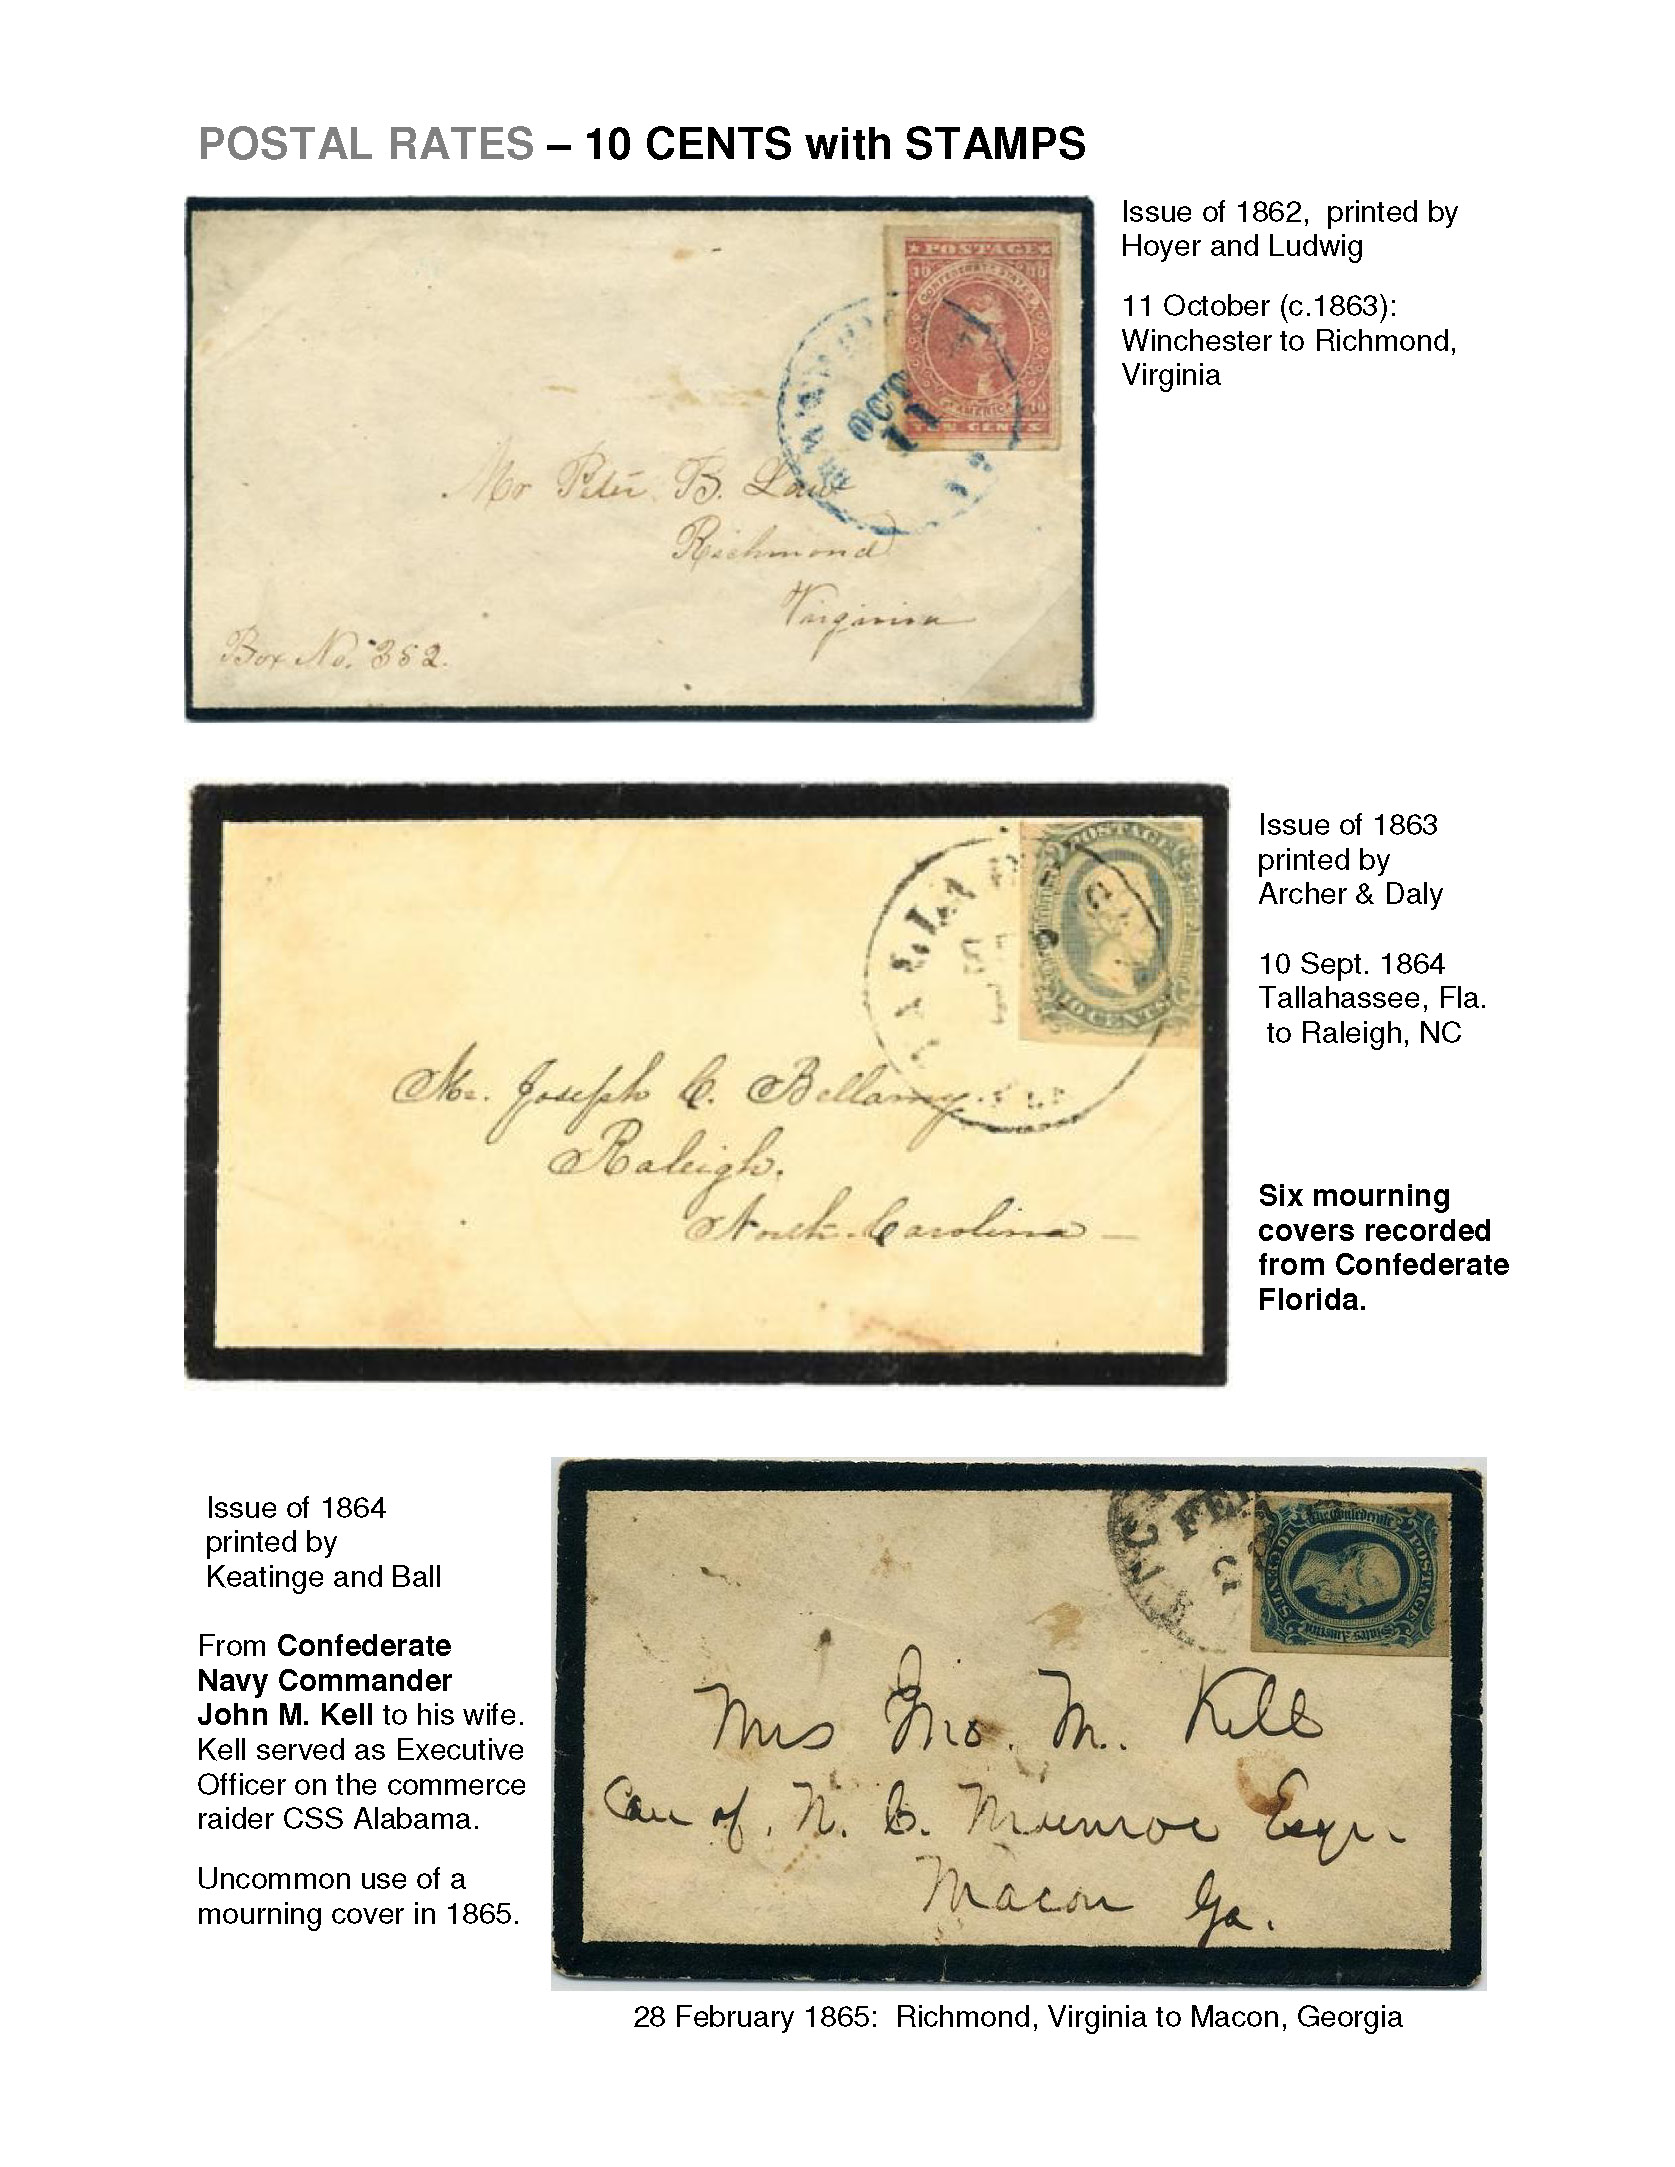 POSTAL RATES – 10 CENTS with STAMPS
Issue of 1862, printed by
Hoyer and Ludwig
11 October (c.1863):
Winchester to Richmond,
Virginia
★POSTAGE★
CONFEDERATE STATES
OF AMERICA
TEN CENTS
OCT
11
Mr Peter B. Law
Richmond
Virginia
Box No. 352.
Issue of 1863
printed by
Archer & Daly
10 Sept. 1864
Tallahassee, Fla.
to Raleigh, NC
POSTAGE
10 CENTS
Mr. Joseph C. Bellamy.
Raleigh.
North Carolina
Six mourning
covers recorded
from Confederate
Florida.
Issue of 1864
printed by
Keatinge and Ball
From Confederate
Navy Commander
John M. Kell to his wife.
Kell served as Executive
Officer on the commerce
raider CSS Alabama.
Uncommon use of a
mourning cover in 1865.
The Confederate
States America
POSTAGE
10 CENTS
Mrs Jno. M. Kell
Care of. N. C. Munroe Esqr.
Macon Ga.
28 February 1865: Richmond, Virginia to Macon, Georgia